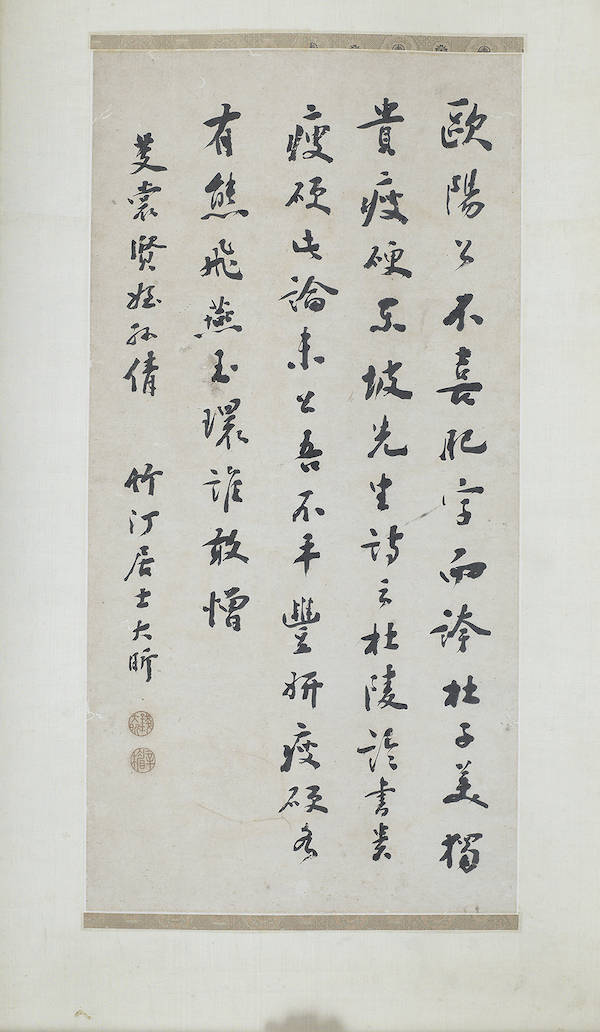 歐陽公不喜肥字而誇杜子美獨
貴瘦硬東坡先生詩云杜陵評書貴
瘦硬此論未公吾不平豐妍瘦硬各
有態飛燕玉環誰敢憎
賢姪孫倩 竹汀居士大昕